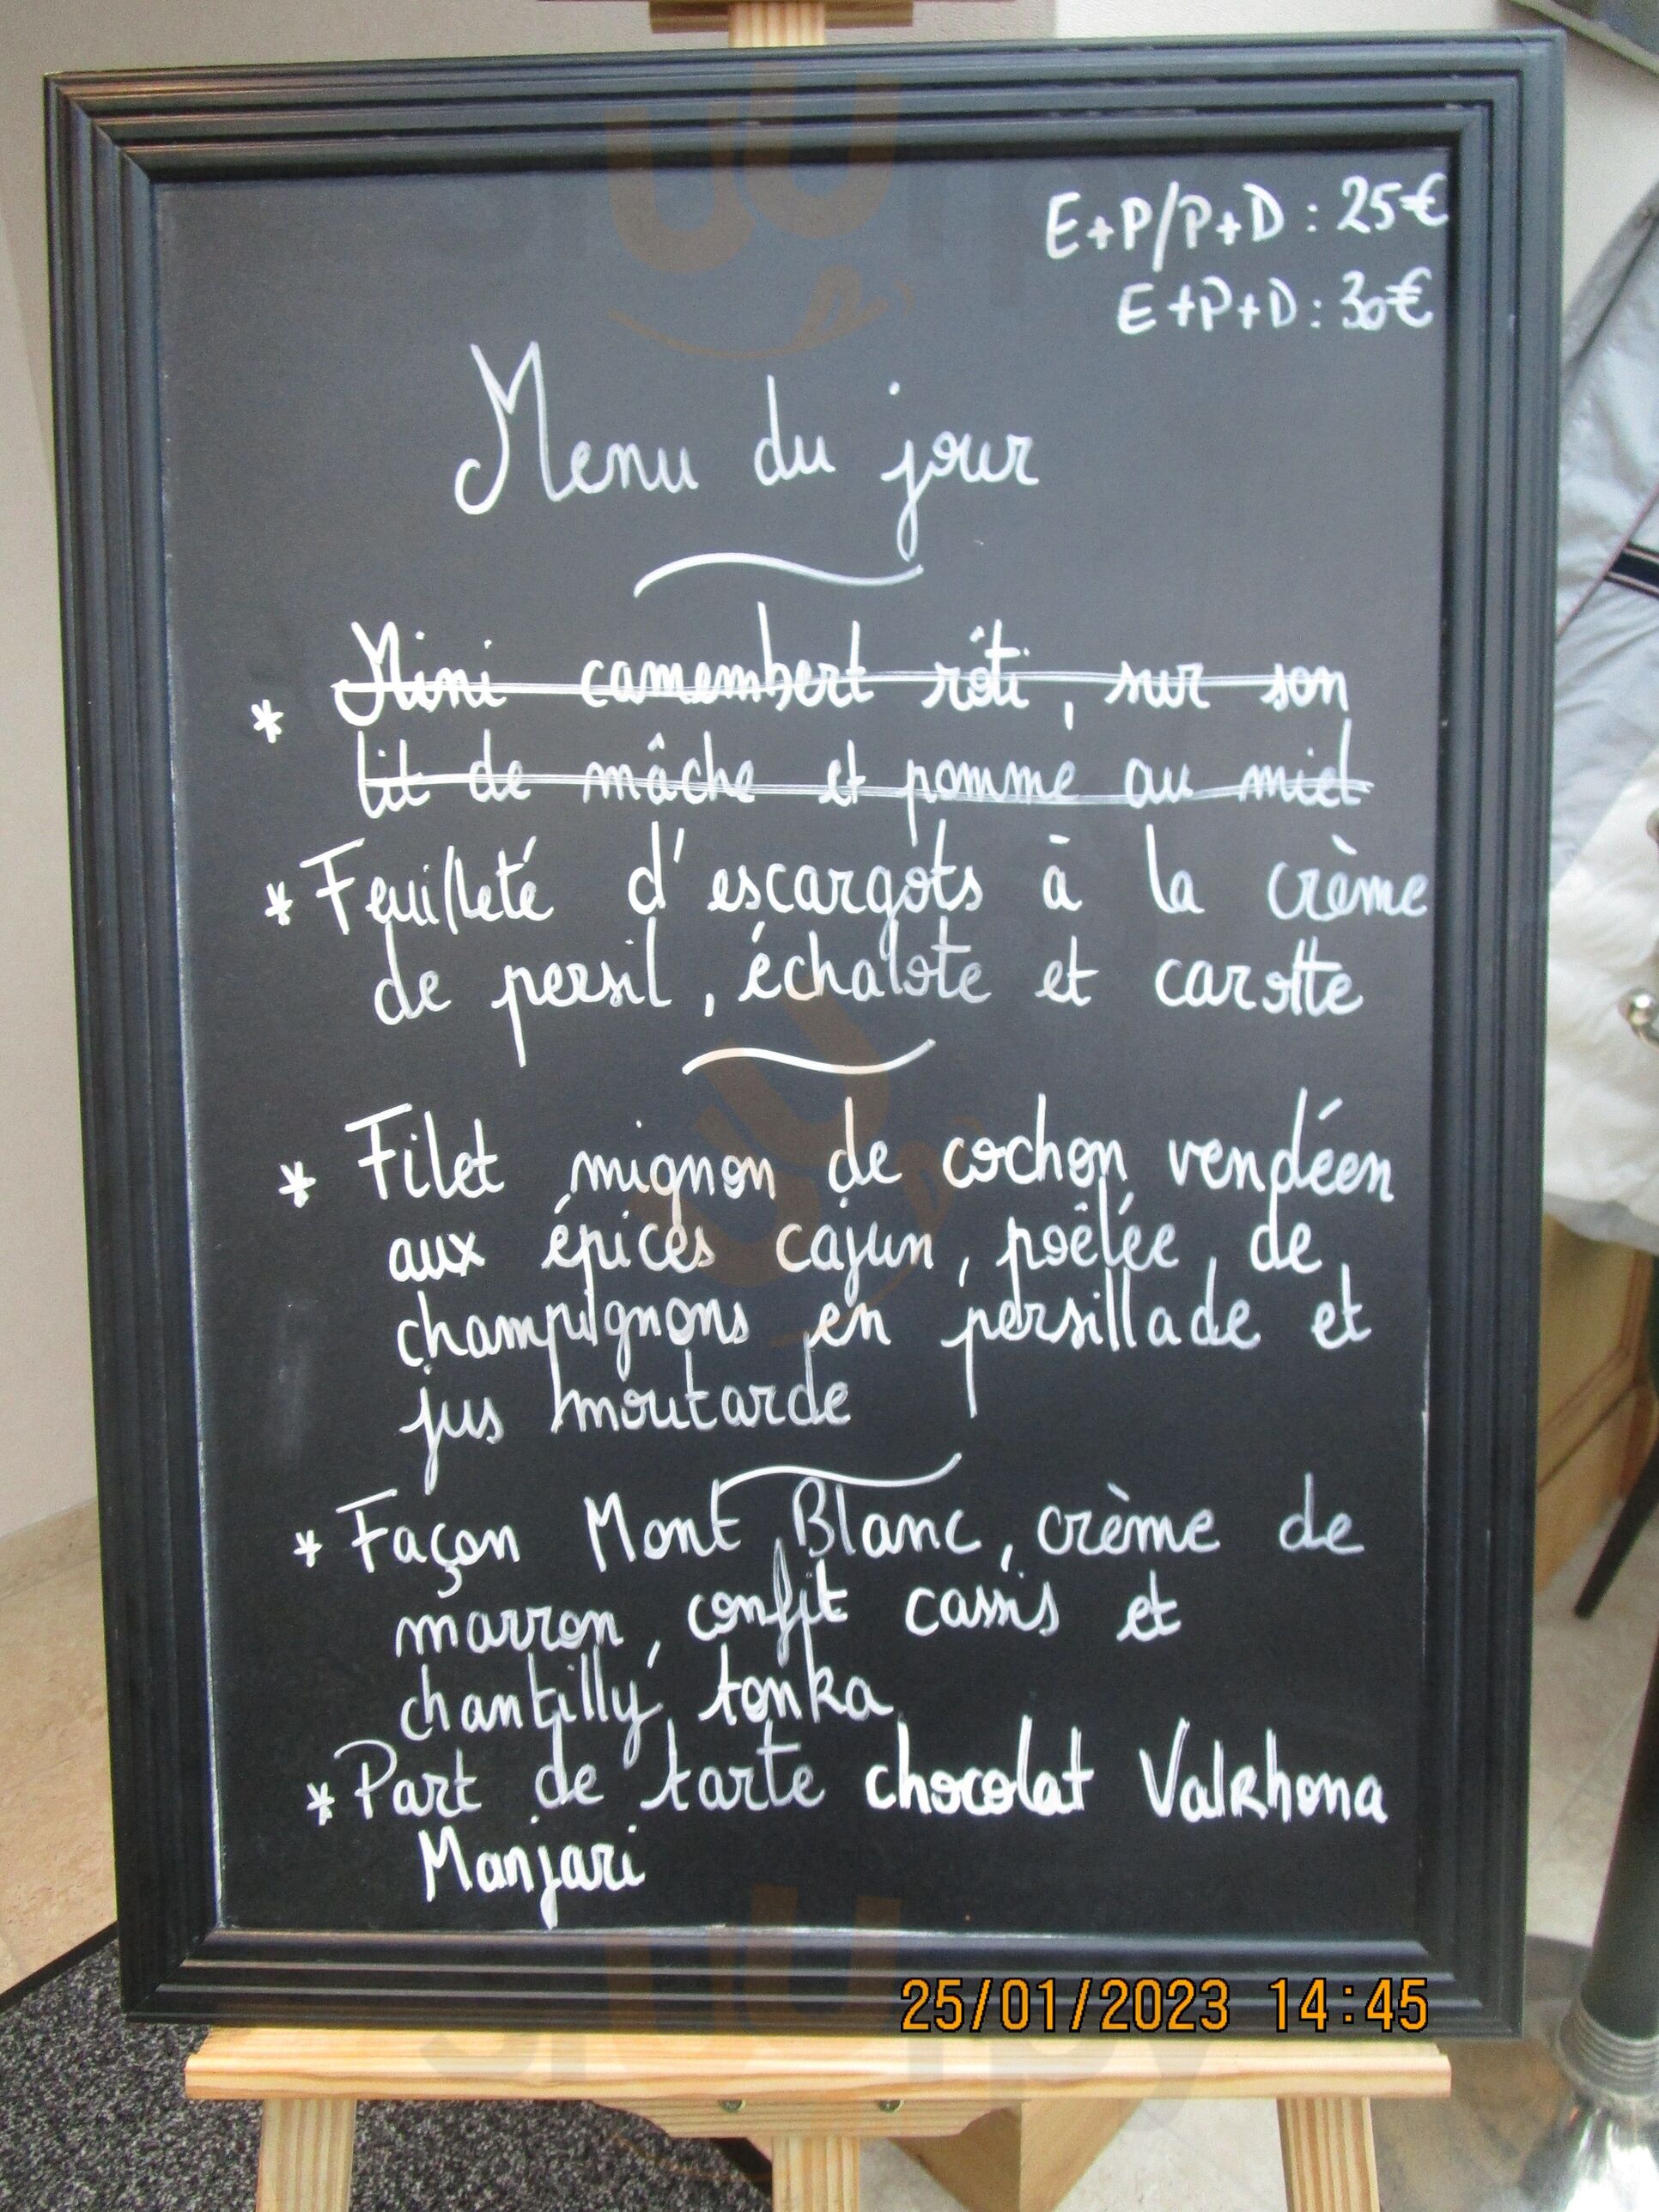 E+P/P+D : 25€
E+P+D : 30€
Menu du jour
* Mini camembert rôti, sur son
lit de mâche et pomme au miel
* Feuilleté d'escargots à la crème
de persil, échalote et carotte
* Filet mignon de cochon vendéen
aux épices cajun, poêlée de
champignons en persillade et
jus moutarde
* Façon Mont Blanc, crème de
marron, confit cassis et
chantilly tonka
* Part de tarte chocolat Valrhona
Manjari
25/01/2023 14:45